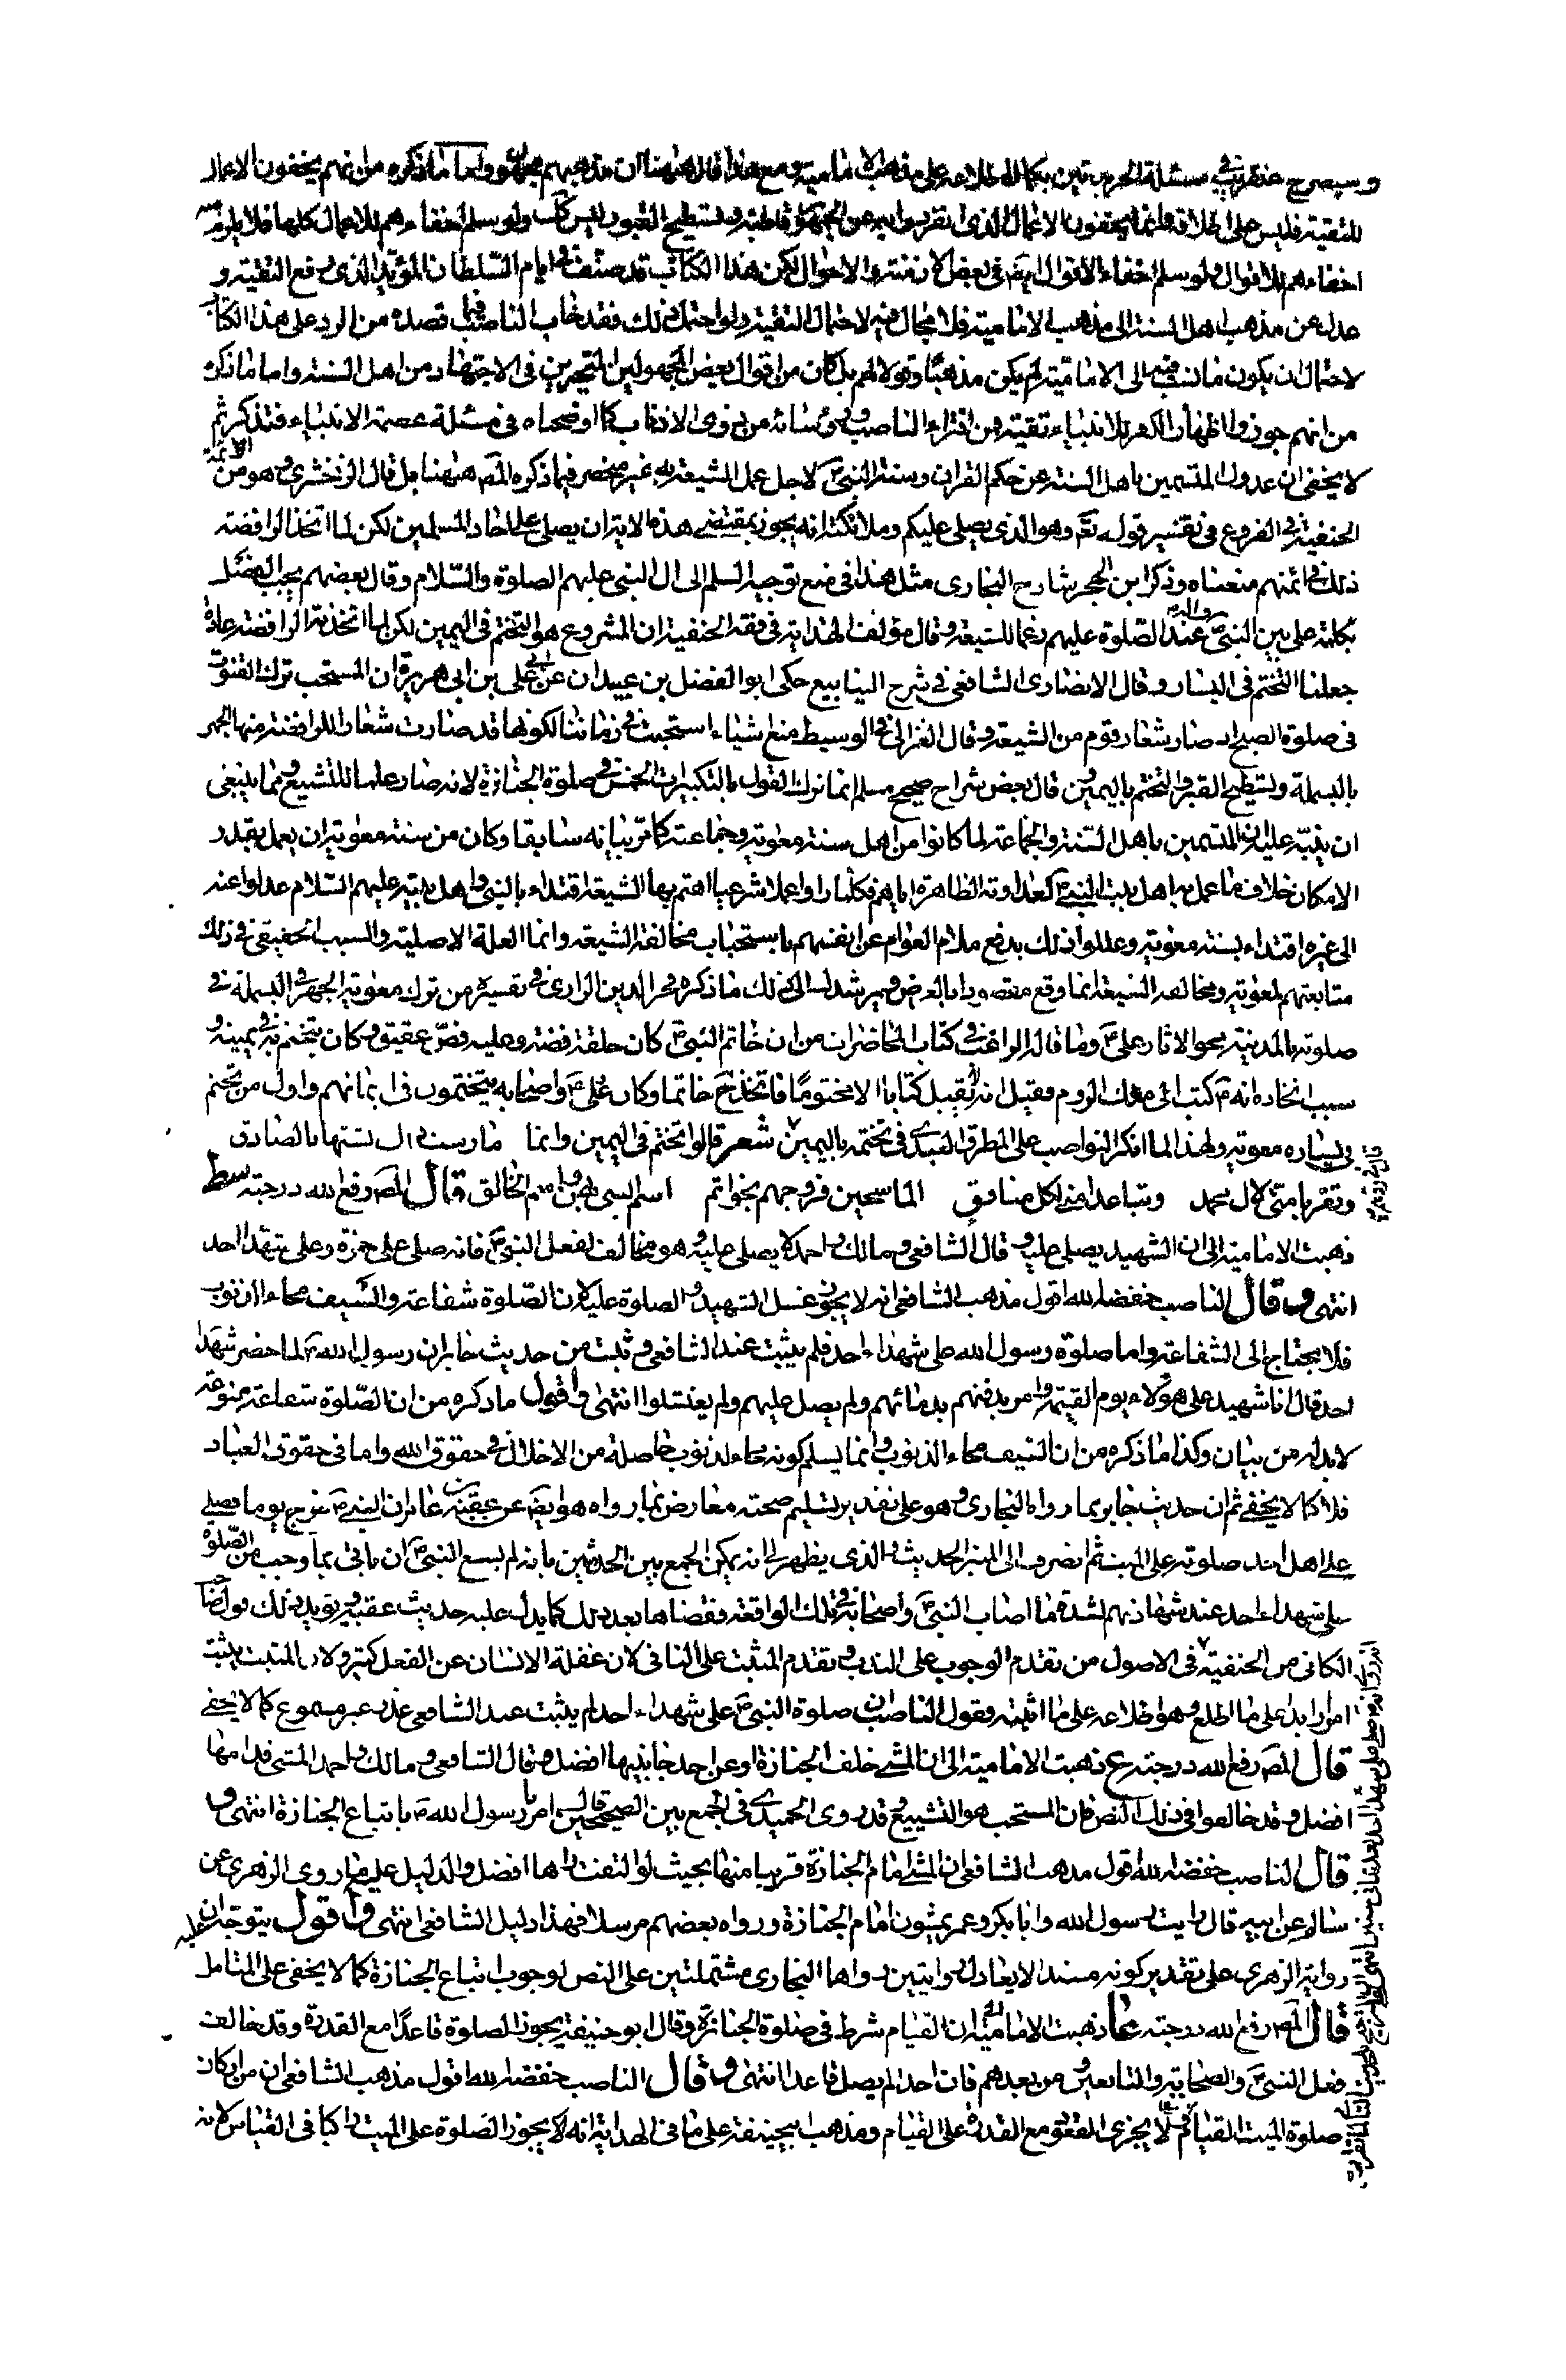 وسيصرح عنقريب في مسئلة الحربيتين بكمال اطلاعه على مذهب الامامية ومع هذا قال ههنا ان مذهبهم مجهول واما ما ذكره من انهم يخفون الاعمال
للتقية فليس على اطلاقه وانما يخفون الاعمال الذى تقربوا به عن الجمهور قاطبة وتسطيح القبور ليس كك ولو سلم اخفاءهم للاعمال كلها فلا يلزم منه
اخفاءهم للاقوال ولو سلم اخفاء الاقوال ايضا في بعض الازمنة والاحوال لكن هذا الكتاب قد صنف في ايام السلطان المؤيد الذى رفع التقية و
عدل عن مذهب اهل السنة الى مذهب الامامية فلا مجال فيه لاحتمال التقية ولو احتمل ذلك فقد خاب الناصب فيما قصده من الرد على هذا الكتاب
لاحتمال ان يكون ما نسب فيه الى الامامية لم يكن مذهبا وقولا لهم بل كان من اقوال بعض المجهولين المتحيرين في الاجتهاد من اهل السنة واما ما ذكره
من انهم جوزوا اظهار الكفر للانبياء تقية فمن افتراء الناصب ورؤسائه من ذوى الاذناب كما اوضحناه في مسئلة عصمة الانبياء فتذكر ثم
لا يخفى ان عدول المتسمين باهل السنة عن حكم القران وسنة النبى ص لاجل عمل الشيعة به غير منحصر فيما ذكره المص ههنا بل قال الزمخشرى وهو من الائمة
الحنفية في الفروع في تفسير قوله تعم وهو الذى يصلى عليكم وملائكته انه يجوز بمقتضى هذه الاية ان يصلى على احاد المسلمين لكن لما اتخذ الرافضة
ذلك في ائمتهم منعناه وذكر ابن الحجر شارح البخارى مثل هذا في منع توجيه السلم الى ال النبى عليهم الصلوة والسلام وقال بعضهم يجب الفصل
بكلمة على بين النبى ص واله عند الصلوة عليهم رغما للشيعة وقال مؤلف الهداية في فقه الحنفية ان المشروع هو التختم في اليمين لكن لما اتخذته الرافضة عادة
جعلنا التختم في اليسار وقال الانصارى الشافعى في شرح الينابيع حكى ابو الفضل بن عبدان عن ابى على بن ابى هريرة ان المستحب ترك القنوت
في صلوة الصبح اذ صار شعار قوم من الشيعة وقال الغزالى في الوسيط منع اشياء استحبت في زماننا لكونها قد صارت شعارا للرافضة منها الجهر
بالبسملة وتسطيح القبر والتختم باليمين وقال بعض شراح صحيح مسلم انما ترك القول بالتكبيرات الخمس في صلوة الجنازة لانه صار علما للتشيع ومما ينبغى
ان ينبه عليه ان المتسمين باهل السنة والجماعة لما كانوا من اهل سنة معوية وجماعته كما مر بيانه سابقا وكان من سنة معوية ان يعمل بقدر
الامكان خلاف ما عمل به اهل بيت النبى ص كعداوته الظاهرة اياهم فكلما راوا عملا شرعيا اهتم بها الشيعة اقتداء بالنبى واهل بيته عليهم السلام عدلوا عنه
الى غيره اقتداء بسنة معوية وعللوا ذلك بدفع ملام العوام عن انفسهم باستحباب مخالفة الشيعة وانما العلة الاصلية والسبب الحقيقى في ذلك
متابعتهم لمعوية ومخالفة الشيعة انما وقع مقصودا بالعرض ويرشدك الى ذلك ما ذكره فخر الدين الرازى في تفسيره من ترك معوية الجهر بالبسملة في
صلوته بالمدينة محوا لاثار على ع وما قاله الراغب في كتاب المحاضرات من ان خاتم النبى ص كان حلقة فضة وعليه فص عقيق وكان يتختم به في يمينه و
سبب اتخاذه انه ص كتب الى ملك الروم فقيل انه لا يقبل كتابا الا مختوما فاتخذ ص خاتما وكان على ع واصحابه يتختمون في ايمانهم واول من تختم
في يساره معوية ولهذا لما انكر النواصب على المطرق العبدى في تختمه باليمين شعر قالوا تختم في اليمين وانما مارست ذلك تشبها بالصادق
وتقربا منى لال محمد وتباعدا منى لكل منافق الماسحين فروجهم بخواتم اسم النبى بهن واسم الخالق قال المص رفع الله درجته سط
ذهبت الامامية الى ان الشهيد يصلى عليه و قال الشافعى ومالك واحمد لا يصلى عليه وهو مخالف لفعل النبى ص فانه صلى على حمزة وعلى شهداء احد
انتهى وقال الناصب خفضه الله اقول مذهب الشافعى انه لا يجوز غسل الشهيد والصلوة عليه لان الصلوة شفاعة والسيف محاء الذنوب
فلا يحتاج الى الشفاعة واما صلوة رسول الله على شهداء احد فلم يثبت عند الشافعى وثبت من حديث جابر ان رسول الله ص لما حضر شهداء
احد قال انا شهيد على هؤلاء يوم القيمة وامر بدفنهم بدمائهم ولم يصل عليهم ولم يغتسلوا انتهى واقول ما ذكره من ان الصلوة شفاعة ممنوعة
لا بد له من بيان وكذا ما ذكره من ان السيف محاء الذنوب وانما يسلم كونه محاء لذنوب حاصلة من الاخلال في حقوق الله واما في حقوق العباد
فلا كما لا يخفى ثم ان حديث جابر بما رواه البخارى وهو على تقدير تسليم صحته معارض بما رواه هو ايضا عن عقبة بن عامر ان النبى ص خرج يوما فصلى
على اهل احد صلوته على الميت ثم انصرف الى المنبر الحديث والذى يظهر لى انه يمكن الجمع بين الحديثين بانه لم يسع النبى ص ان ياتى بما وجب من الصلوة
على شهداء احد عند شهادتهم لشدة ما اصاب النبى ص واصحابه في تلك الواقعة فقضاها بعد ذلك كما يدل عليه حديث عقبة ويؤيد ذلك قول صاحب
الكافى من الحنفية في الاصول من تقدم الوجوب على الندب وتقدم المثبت على النافى لان غفلة الانسان عن الفعل كثير ولان المثبت يثبت
امرا زايدا على ما اطلع وهو اطلاعه على ما اثبته وقول الناصب ان صلوة النبى ص على شهداء احد لم يثبت عند الشافعى عذر غير مسموع كما لا يخفى
قال المص رفع الله درجته ع ذهبت الامامية الى ان المشى خلف الجنازة او عن احد جانبيها افضل وقال الشافعى ومالك واحمد المشى قدامها
افضل وقد خالفوا في ذلك النص فان المستحب هو التشييع وقد روى الحميدى في الجمع بين الصحيحين قال امرنا رسول الله ص باتباع الجنازة انتهى و
قال الناصب خفضه الله اقول مذهب الشافعى ان المشى امام الجنازة قريبا منها بحيث لو التفت راها افضل والدليل عليه ما روى الزهرى عن
سالم عن ابيه قال رايت رسول الله وابا بكر وعمر يمشون امام الجنازة ورواه بعضهم مرسلا فهذا دليل الشافعى انتهى واقول يتوجه عليه ان
رواية الزهرى على تقدير كونه مسندا لا يعادل روايتين رواها البخارى مشتملتين على النص لوجوب اتباع الجنازة كما لا يخفى على المتامل
قال المص رفع الله درجته عا ذهبت الامامية الى ان القيام شرط في صلوة الجنازة وقال ابو حنيفة يجوز الصلوة قاعدا مع القدرة وقد خالف
فعل النبى ص والصحابة والتابعين ومن بعدهم فان احدا لم يصل قاعدا انتهى وقال الناصب خفضه الله اقول مذهب الشافعى ان من اركان
صلوة الميت القيام ولا يجزى القعود مع القدرة على القيام ومذهب ابيحنيفة على ما في الهداية انه لا يجوز الصلوة على الميت راكبا في القياس لانه